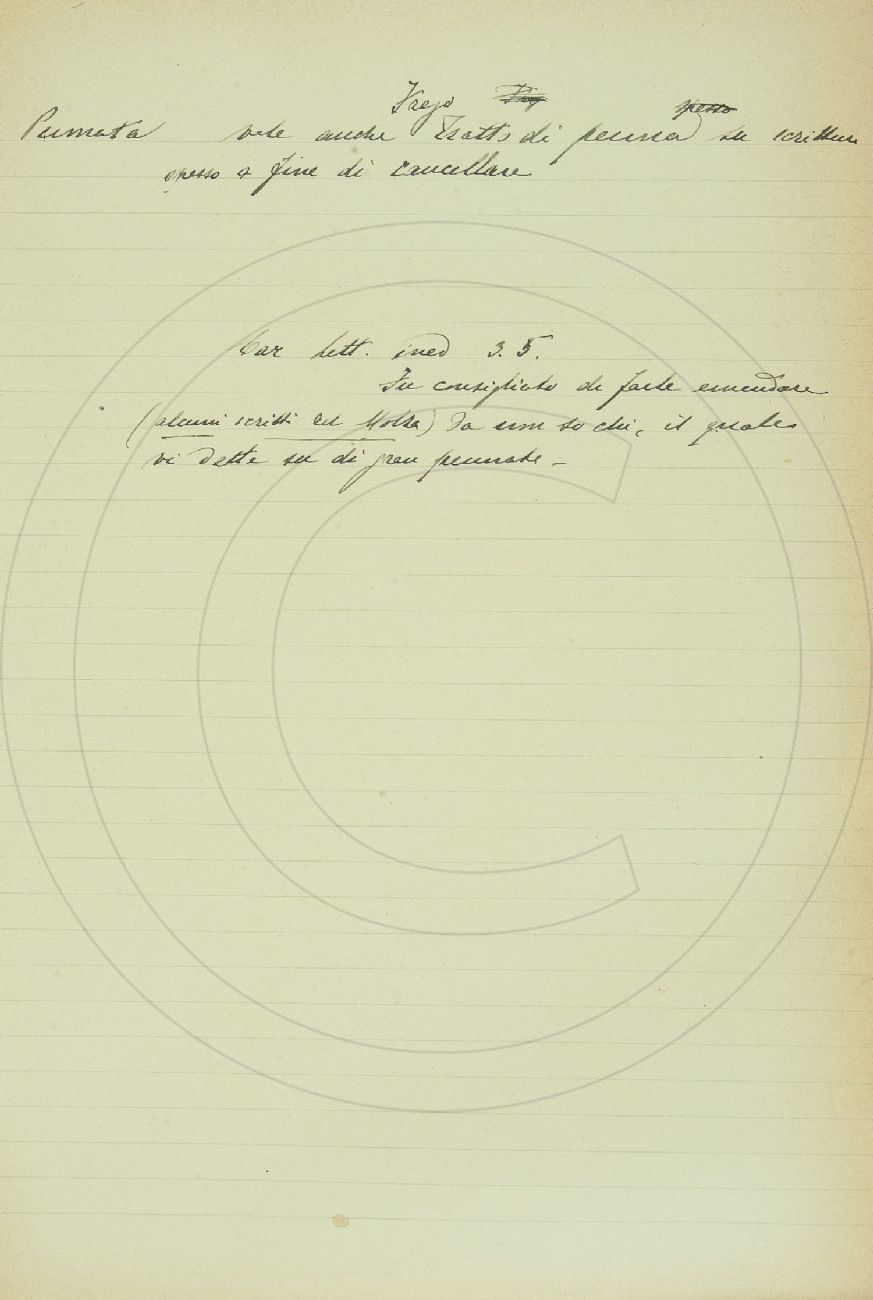 Frego Freg spesso
Pennata vale anche Tratto di penna su scritture
spesso a fine di cancellare
Car lett. ined 3. 5.
Fu consigliato di farle emendare
(alcuni scritti del Molza) da non so chi, il quale
vi dette su di gran pennate.